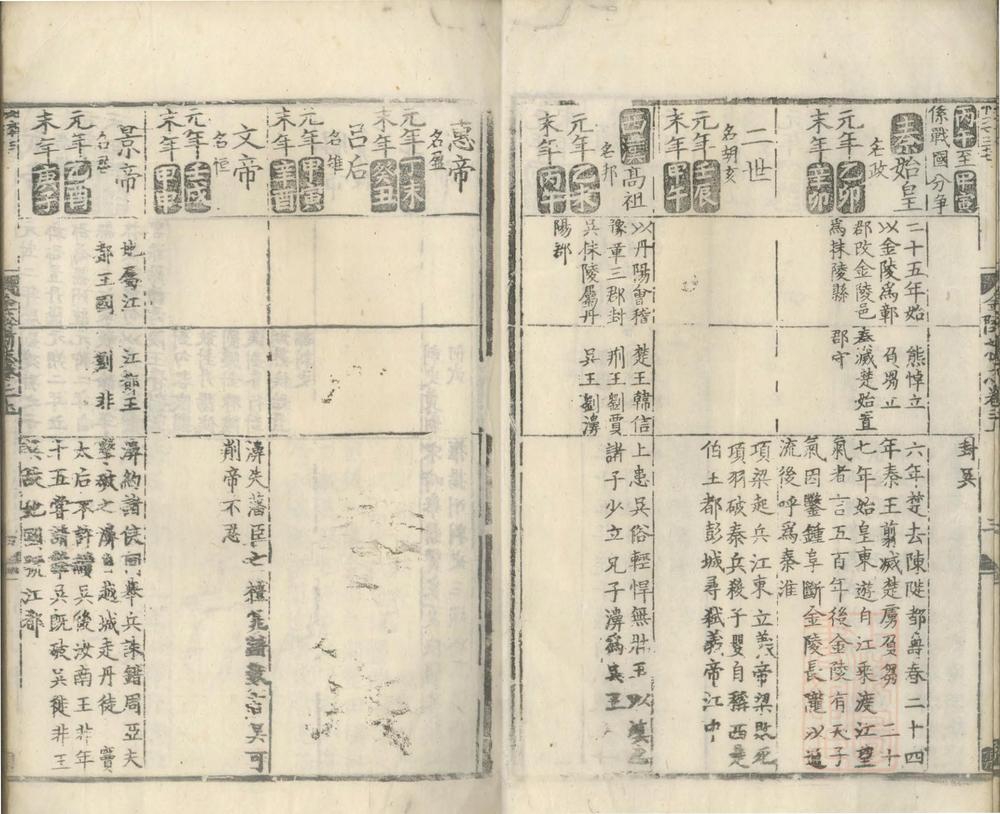 丙午至甲寅
係戰國分爭
封吳
秦始皇
名政
元年乙卯
末年辛卯
二十五年始
以金陵為鄣
郡改金陵邑
為秣陵縣
熊悼立
負芻立
秦滅楚始置
郡守
六年楚去陳陡都壽春二十四
年秦王翦滅楚虜負芻 三十
七年始皇東遊自江乘渡江望
氣者言五百年後金陵有天子
氣因鑿鍾阜斷金陵長隴以通
流後呼為秦淮
二世
名胡亥
元年壬辰
末年甲午
項梁起兵江東立義帝梁敗死
項羽破秦兵殺子嬰自稱西楚
伯王都彭城尋弒義帝江中
西漢高祖
名邦
元年乙未
末年丙午
以丹陽會稽
豫章三郡封
吳秣陵屬丹
陽郡
楚王韓信
荊王劉賈
吳王劉濞
上患吳俗輕悍無壯王以填之
諸子少立兄子濞為吳王
惠帝
名盈
元年丁未
末年癸丑
呂后
名雉
元年甲寅
末年辛酉
文帝
名恒
元年壬戌
末年甲申
濞失藩臣之禮
吳可
削帝不忍
景帝
名啟
元年乙酉
末年庚子
地屬江
都王國
江都王
劉非
濞約諸侯同舉兵誅錯周亞夫
擊破之濞自越城走丹徒 竇
太后不許續吳後汝南王非年
十五嘗請擊吳兵既破吳徙非王
吳故地國號江都
金陵志卷三